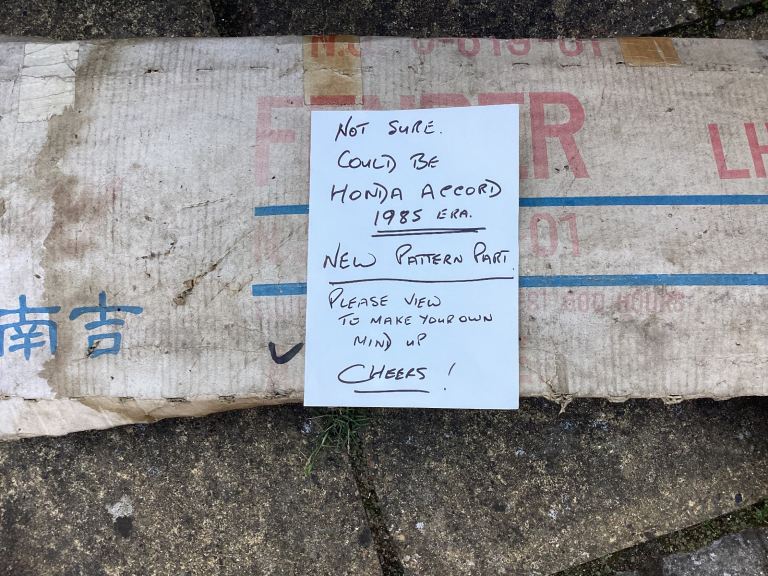 FENDER
LH
01
南吉
NOT SURE.
COULD BE
HONDA ACCORD
1985 ERA.
NEW PATTERN PART.
PLEASE VIEW
TO MAKE YOUR OWN
MIND UP
CHEERS!